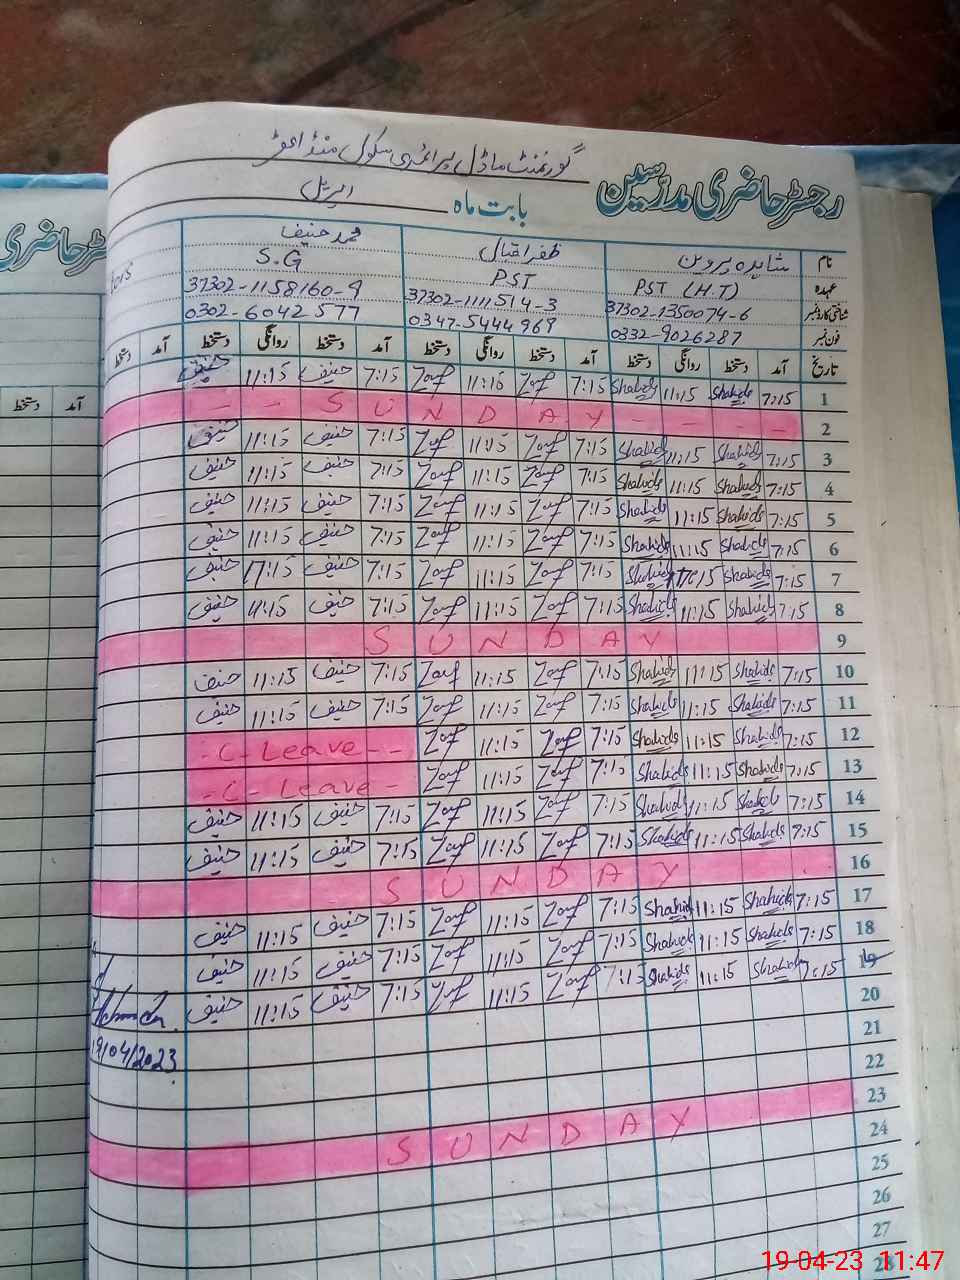 گورنمنٹ ماڈل پرائمری سکول
رجسٹر حاضری مدرسین
بابت ماہ اپریل
نام شاہدہ پروین ظفر اقبال محمد حنیف
عہدہ PST (H.T) PST S.G
شناختی کارڈ نمبر 37302-1350074-6 37302-1111514-3 37302-1158160-9
فون نمبر 0332-9026287 0347-5444969 0302-6042577
تاریخ آمد دستخط روانگی دستخط آمد دستخط روانگی دستخط آمد دستخط روانگی دستخط آمد دستخط
1 7:15 Shahida 11:15 Shahida 7:15 Zaf 11:15 Zaf 7:15 حنیف 11:15 حنیف
2 - - S U N D A Y - - - -
3 7:15 Shahida 11:15 Shahida 7:15 Zaf 11:15 Zaf 7:15 حنیف 11:15 حنیف
4 7:15 Shahida 11:15 Shahida 7:15 Zaf 11:15 Zaf 7:15 حنیف 11:15 حنیف
5 7:15 Shahida 11:15 Shahida 7:15 Zaf 11:15 Zaf 7:15 حنیف 11:15 حنیف
6 7:15 Shahida 11:15 Shahida 7:15 Zaf 11:15 Zaf 7:15 حنیف 11:15 حنیف
7 7:15 Shahida 11:15 Shahida 7:15 Zaf 11:15 Zaf 7:15 حنیف 11:15 حنیف
8 7:15 Shahida 11:15 Shahida 7:15 Zaf 11:15 Zaf 7:15 حنیف 11:15 حنیف
9 S U N D A Y
10 7:15 Shahida 11:15 Shahida 7:15 Zaf 11:15 Zaf 7:15 حنیف 11:15 حنیف
11 7:15 Shahida 11:15 Shahida 7:15 Zaf 11:15 Zaf 7:15 حنیف 11:15 حنیف
12 7:15 Shahida 11:15 Shahida 7:15 Zaf 11:15 Zaf - C - Leave - -
13 7:15 Shahida 11:15 Shahida 7:15 Zaf 11:15 Zaf - C - Leave -
14 7:15 Shahida 11:15 Shahida 7:15 Zaf 11:15 Zaf 7:15 حنیف 11:15 حنیف
15 7:15 Shahida 11:15 Shahida 7:15 Zaf 11:15 Zaf 7:15 حنیف 11:15 حنیف
16 S U N D A Y
17 7:15 Shahida 11:15 Shahida 7:15 Zaf 11:15 Zaf 7:15 حنیف 11:15 حنیف
18 7:15 Shahida 11:15 Shahida 7:15 Zaf 11:15 Zaf 7:15 حنیف 11:15 حنیف
19 7:15 Shahida 11:15 Shahida 7:15 Zaf 11:15 Zaf 7:15 حنیف 11:15 حنیف
20
21
19/04/2023
22
23 S U N D A Y
24
25
26
27
28
رجسٹر حاضری
آمد دستخط
19-04-23 11:47